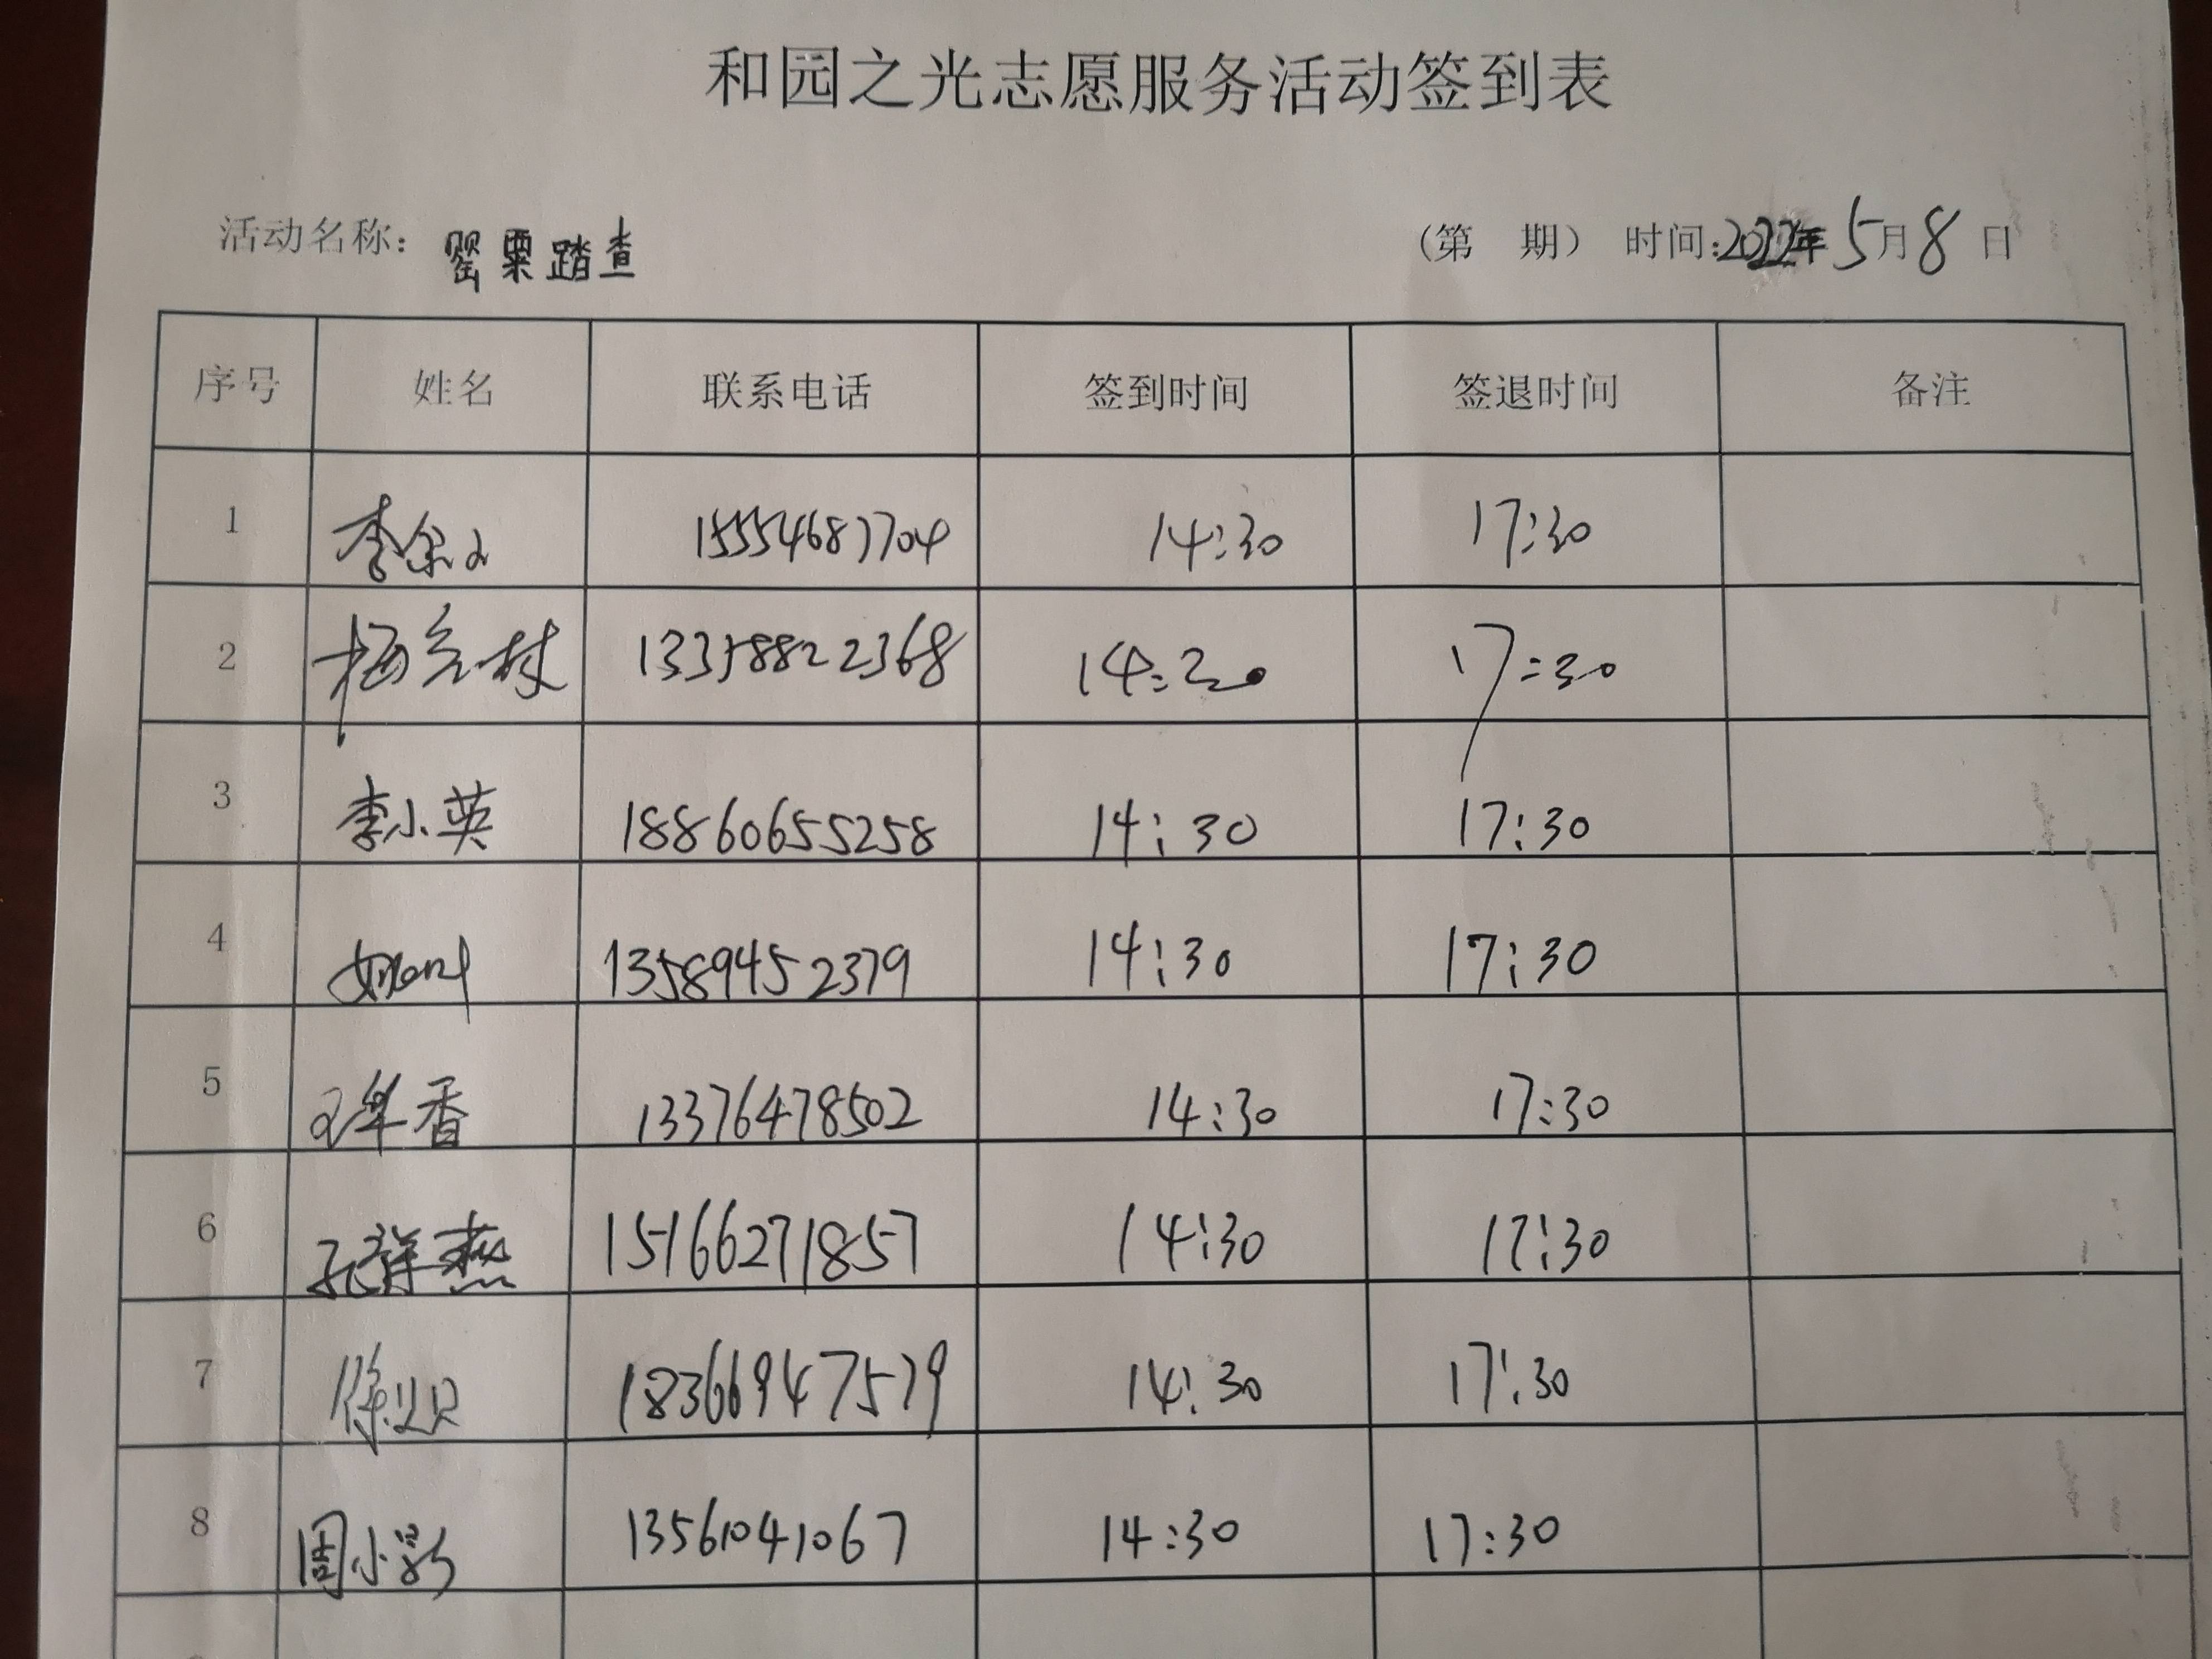 和园之光志愿服务活动签到表
活动名称：罂粟踏查 （第 期） 时间：2022年5月8日
序号 姓名 联系电话 签到时间 签退时间 备注
1 15554687704 14:30 17:30
2 14:30 17:30
3 李小英 18860655258 14:30 17:30
4 13589452379 14:30 17:30
5 香 13376478502 14:30 17:30
6 孔祥燕 15166271857 14:30 17:30
7 徐 18366947579 14:30 17:30
8 周小影 13561041067 14:30 17:30